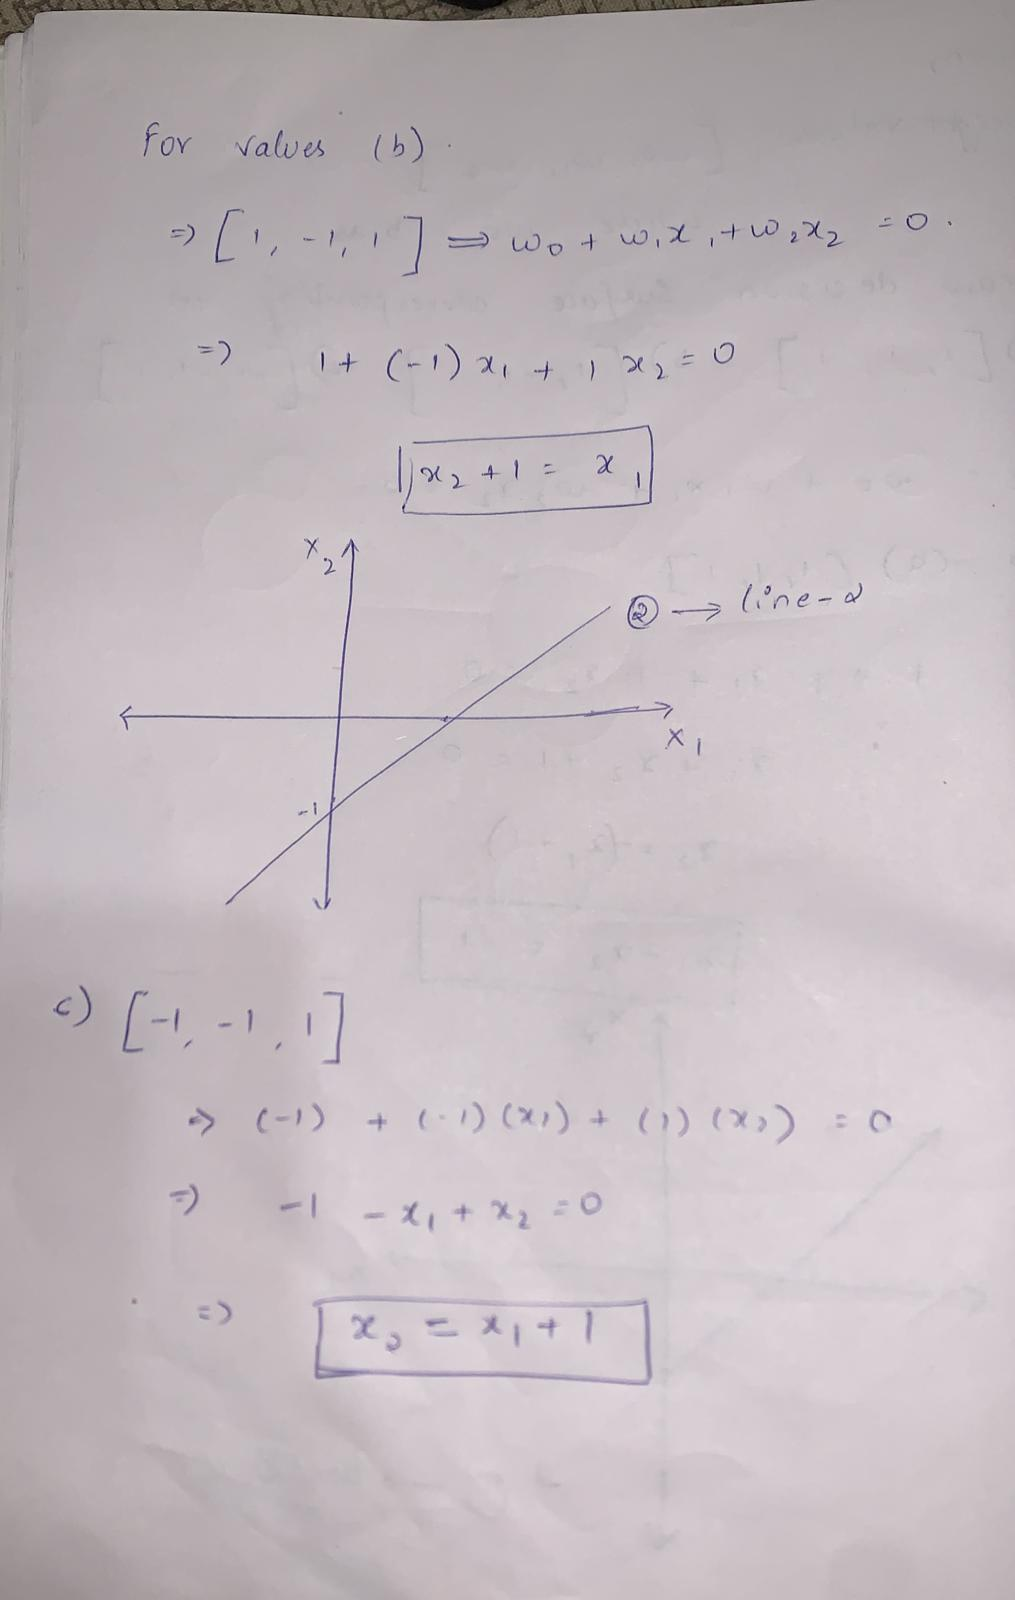 For values (b).
⇒ [1, -1, 1] ⇒ w₀ + w₁x₁ + w₂x₂ = 0.
⇒ 1 + (-1) x₁ + 1 x₂ = 0
x₂ + 1 = x₁
X₂
② → line-2
X₁
-1
c) [-1, -1, 1]
⇒ (-1) + (-1)(x₁) + (1)(x₂) = 0
⇒ -1 - x₁ + x₂ = 0
⇒ x₂ = x₁ + 1